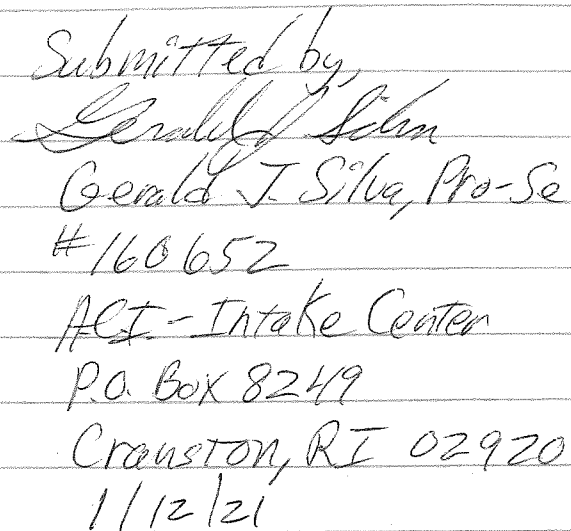 Submitted by,
Gerald J Silva
Gerald J. Silva, Pro-Se
#160652
ACI-Intake Center
P.O. Box 8249
Cranston, RI 02920
1/12/21